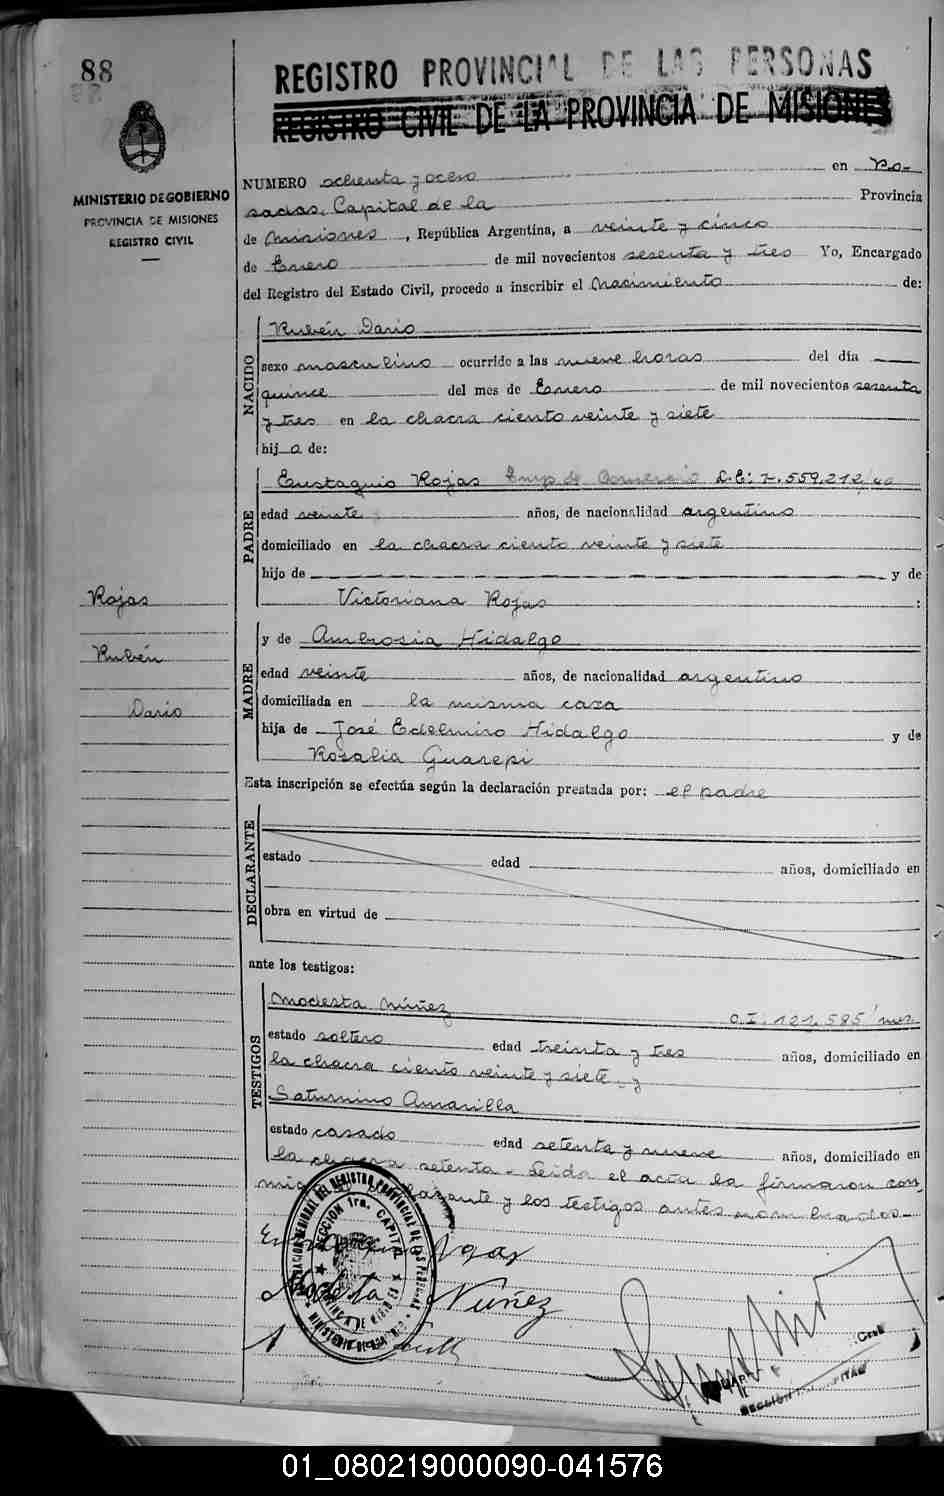 88
REGISTRO PROVINCIAL DE LAS PERSONAS
REGISTRO CIVIL DE LA PROVINCIA DE MISIONES
MINISTERIO DE GOBIERNO
PROVINCIA DE MISIONES
REGISTRO CIVIL
NUMERO ochenta y ocho en Po-
sadas, Capital de la Provincia
de Misiones, República Argentina, a veinte y cinco
de Enero de mil novecientos sesenta y tres Yo, Encargado
del Registro del Estado Civil, procedo a inscribir el Nacimiento de:
NACIDO
Rubén Dario
sexo masculino ocurrido a las nueve horas del día
quince del mes de Enero de mil novecientos sesenta
y tres en la chacra ciento veinte y siete
hijo de:
PADRE
Eustaquio Rojas Emp. de Comercio L.E: 7.559.212
edad veinte años, de nacionalidad argentino
domiciliado en la chacra ciento veinte y siete
hijo de y de
Victoriana Rojas :
Rojas
Rubén
Dario
MADRE
y de Ambrosia Hidalgo
edad veinte años, de nacionalidad argentino
domiciliada en la misma casa
hija de José Edelmiro Hidalgo y de
Rosalia Guarepi
Esta inscripción se efectúa según la declaración prestada por: el padre
DECLARANTE
estado edad años, domiciliado en
obra en virtud de
ante los testigos:
TESTIGOS
Modesta Núñez C.I. 121.585
estado soltero edad treinta y tres años, domiciliado en
la chacra ciento veinte y siete y
Saturnino Amarilla
estado casado edad setenta y nueve años, domiciliado en
la chacra setenta - Leida el acta la firmaron con-
migo y los testigos antes nombrados-
Modesta Nuñez
SECCION 1ra. CAPITAL
01_080219000090-041576